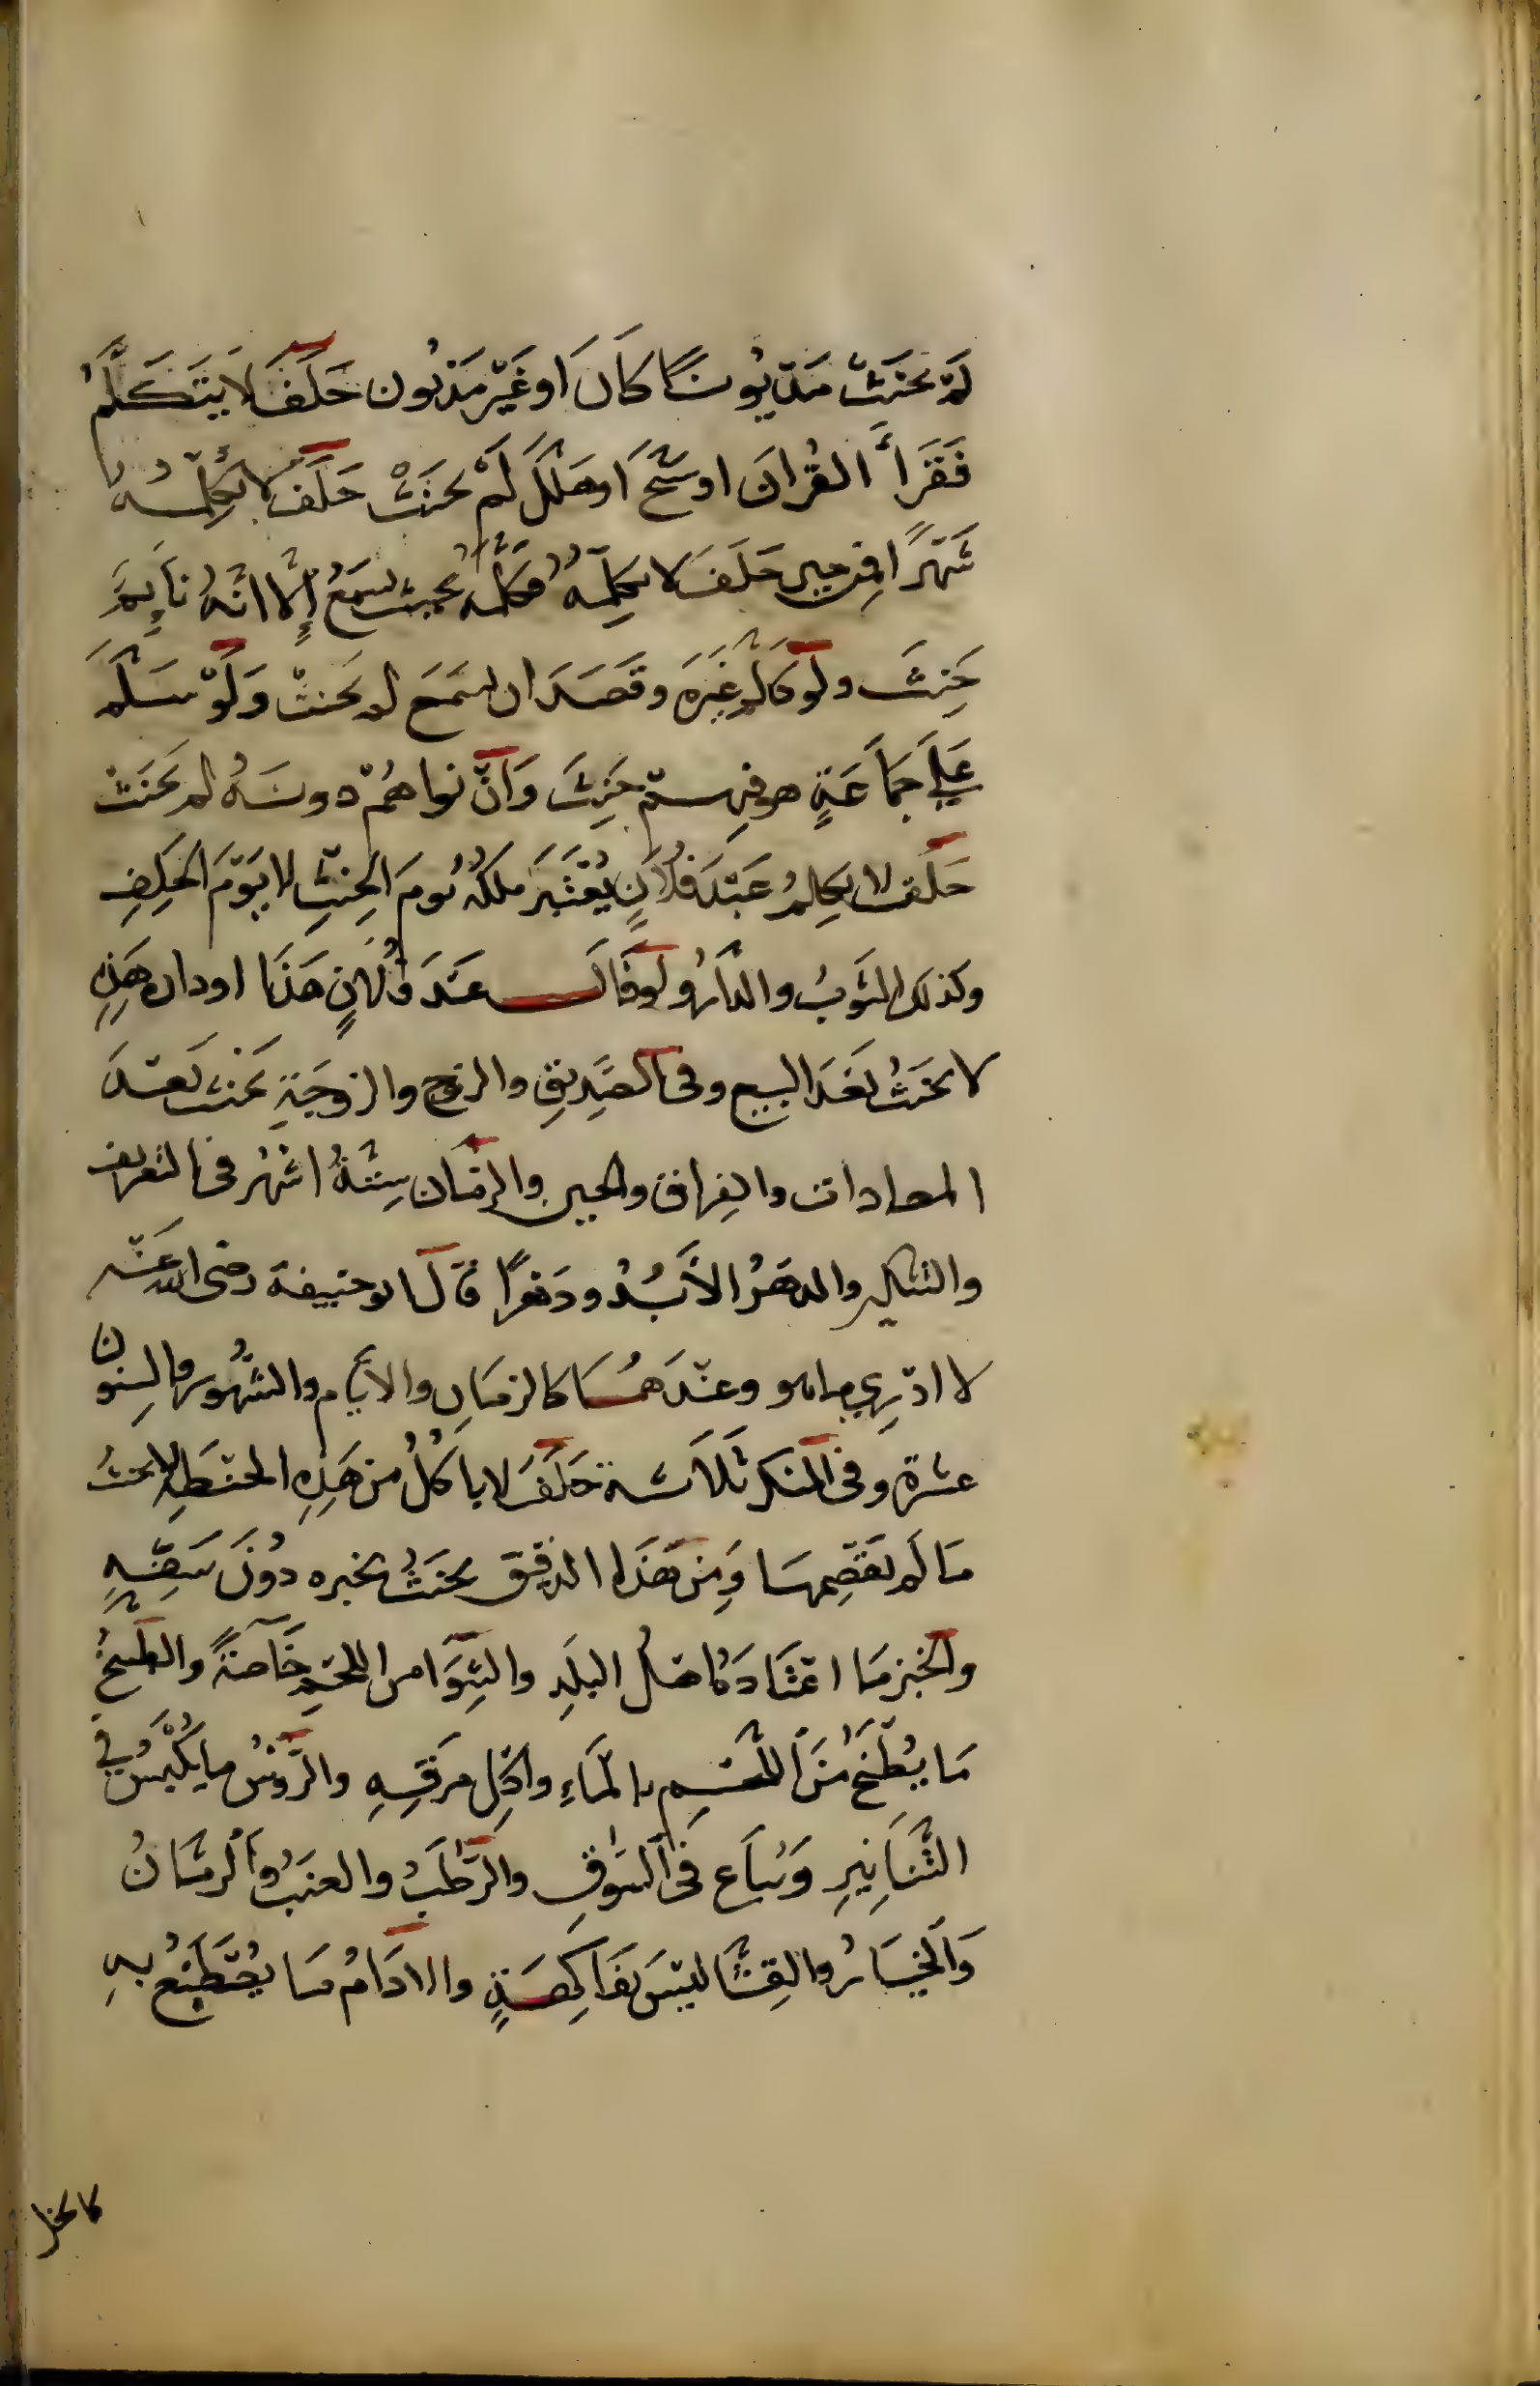 لَمْ يحنَثْ مَدْيُونًا كَانَ اَو غَيْر مَدْيُون حَلَفَ لا يَتَكَلَّمُ
فَقَرَأَ القُرانَ اوسَبَّحَ اَوهَلَّلَ لَمْ يحنَثْ حَلَفَ لا يُكلِّمُهُ
شَهْرًا فمِن حين حَلَفَ لا يكلِّمهُ فكلَّمه بحيث يسمَعُ إلَّا انَّهُ نَايِمٌ
حَنِثَ ولو كلَّم غيْرَه وقَصَدَ ان يسمَعَ لم يحَنثْ وَلَوْ سَلَّمَ
عَلَي جَمَاعَةٍ هو فيهم حَنِثَ وَانْ نواهُمْ دونَهُ لم يحَنَثْ
حَلَفَ لا يكلِمُ عَبْدَ فُلَانٍ يُعْتَبَرُ ملكُهُ يَومَ الحِنثِ لا يَوْمَ الحَلِفِ
وكذلك الثَوبُ والدَّارُ ولو قَالَ عَبْدَ فُلَانٍ هَذَا او دار هَذِهِ
لا يحنَثُ بَعْدَ البيع وفي الصَّدِيقِ والزوج والزوجَةِ يحَنث بَعْدَ
المعادات والفِراق والحين والزمَان سِتَّةُ اشْهُر في التعريف
والتنكير والدهَرُ الأَبَدُ ودَهْرًا قَالَ ابو حنيفة رضى الله عَنْه
لا ادْرِي ما هو وعنْدَهُمَا كالزمَانِ والايَّام والشُّهُور والسِنون
عشرة وفى المنكر ثَلَاثَة حَلَفَ لا يا كُلُ من هَذِهِ الحنطَةِ لا يحنثُ
مَا لَم يَقْضِمهَا وَمِن هَذَا الدقيق يحنَثُ بخبزه دُونَ سَفِّهِ
والخبز مَا اعْتَادَهُ اهْلُ البَلَدِ والشِوَا من اللحْمِ خَاصَةً والطَبيخُ
مَا يُطْبَخُ مِنَ اللحْمِ بالمَاءِ واكْلِ مَرَقِهِ والرَّوسُ ما يُكْبَسُ في
التَّنَانِيرِ وَيُباَع في السُوقِ والرُّطَبُ والعنَبُ والرمَّانُ
وَالخِيَارُ والقِثَّا ليْسَ بفَاكِهَةٍ والادَامُ مَا يُصْطَبَغُ بِهِ
كالخل